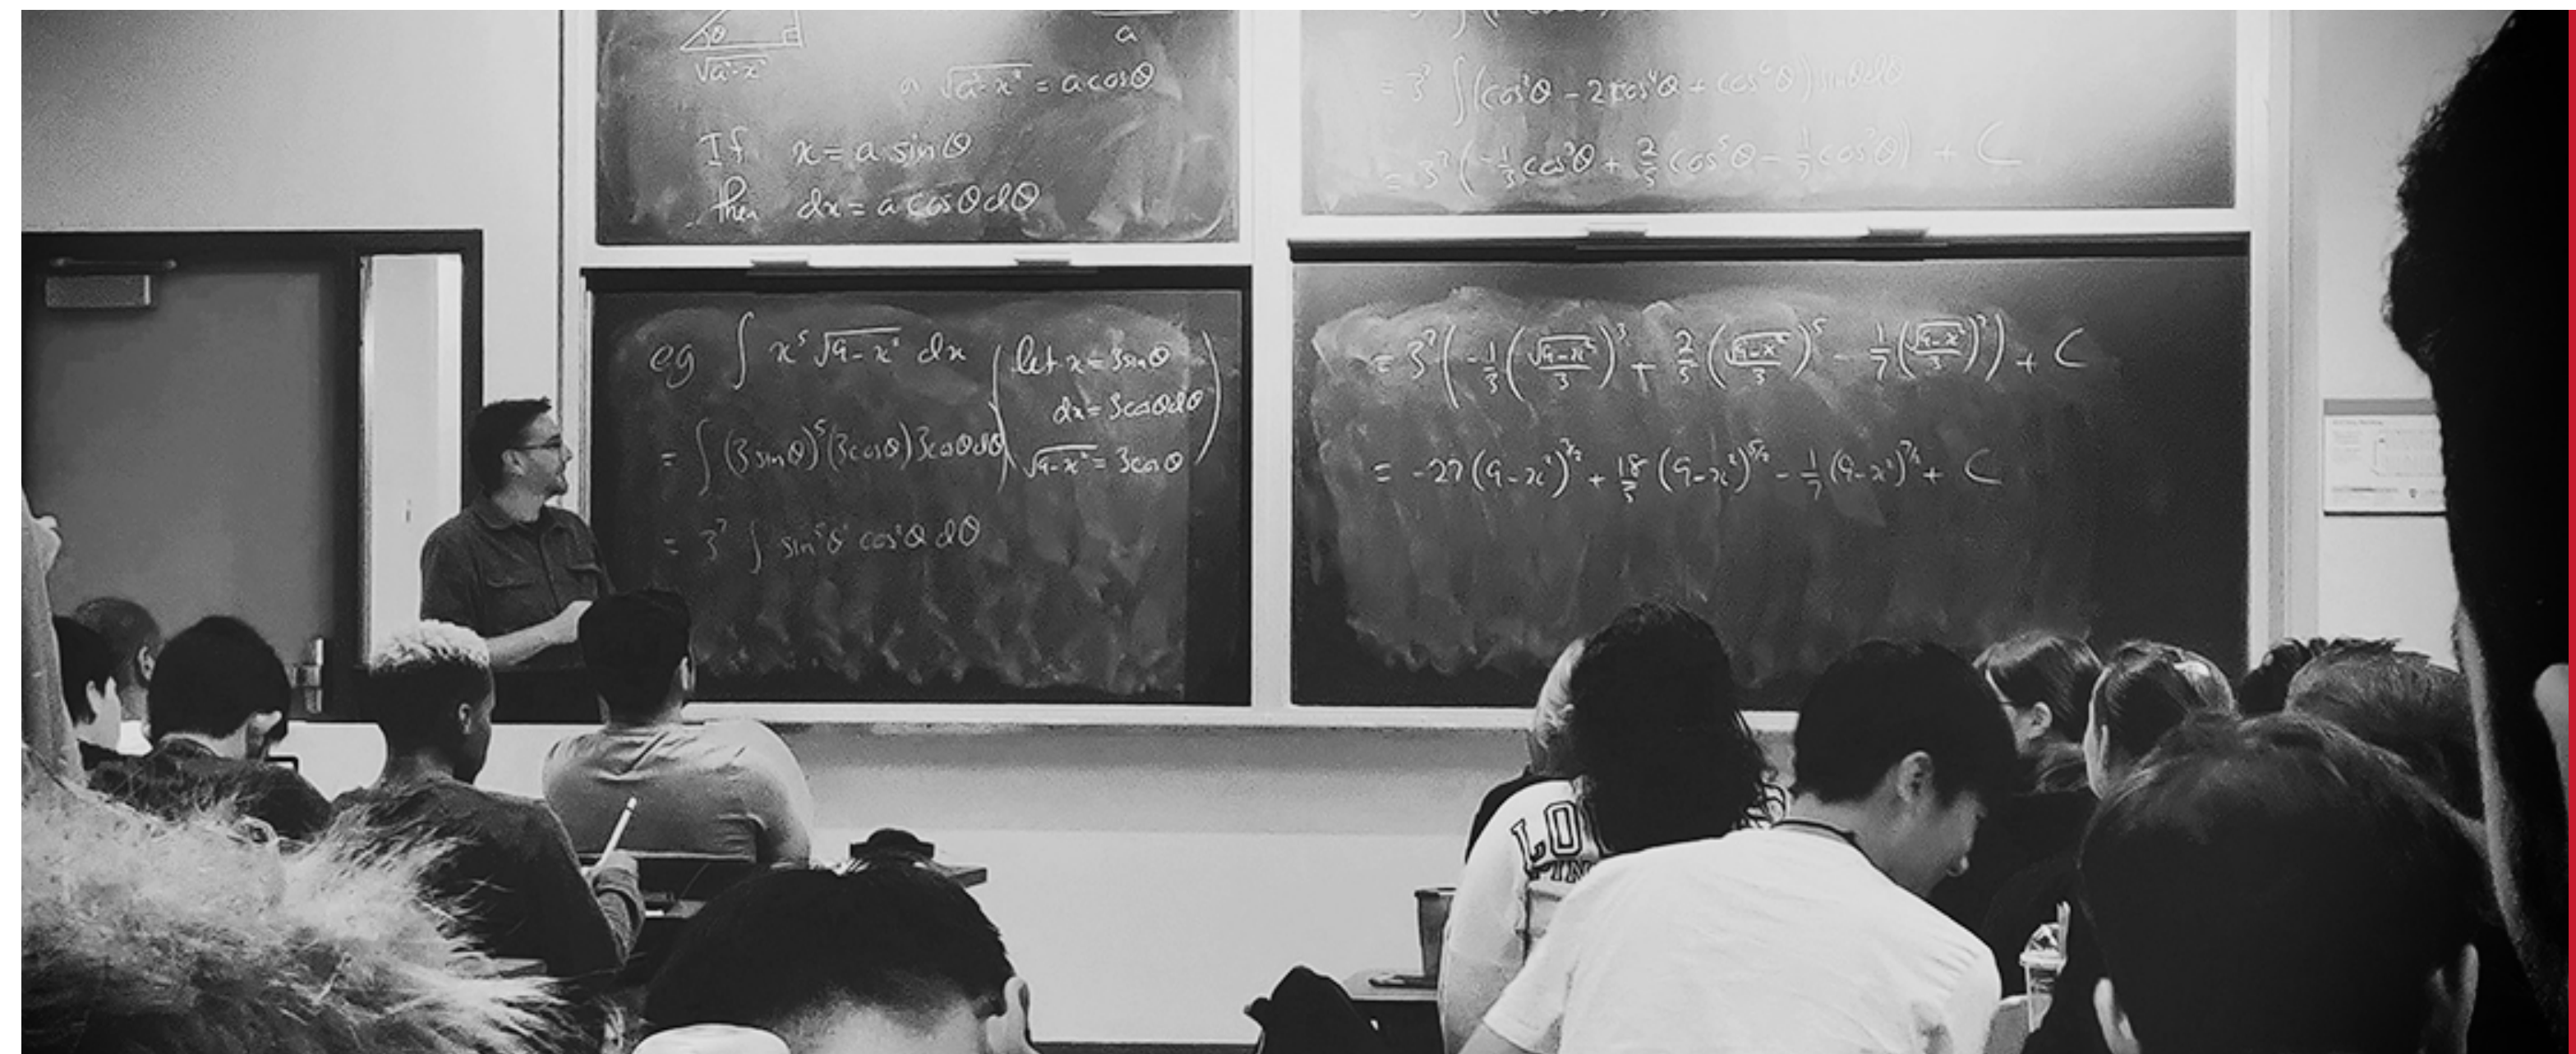 θ
√a²-x²
a
√a²-x² = a cosθ
If x = a sinθ
then dx = a cosθ dθ
eg ∫ x⁵ √9-x² dx (let x = 3sinθ
dx = 3cosθdθ
= ∫ (3 sinθ)⁵ (3cosθ) 3cosθdθ
√9-x² = 3cosθ)
= 3⁷ ∫ sin⁵θ cos²θ dθ
= 3⁷ ∫(cos²θ - 2cos⁴θ + cos⁶θ) sinθdθ
= 3⁷ (-1/3 cos³θ + 2/5 cos⁵θ - 1/7 cos⁷θ) + C
= 3⁷ (-1/3 (√9-x²/3)³ + 2/5 (√9-x²/3)⁵ - 1/7 (√9-x²/3)⁷) + C
= -27 (9-x²)^3/2 + 18/5 (9-x²)^5/2 - 1/7 (9-x²)^7/2 + C